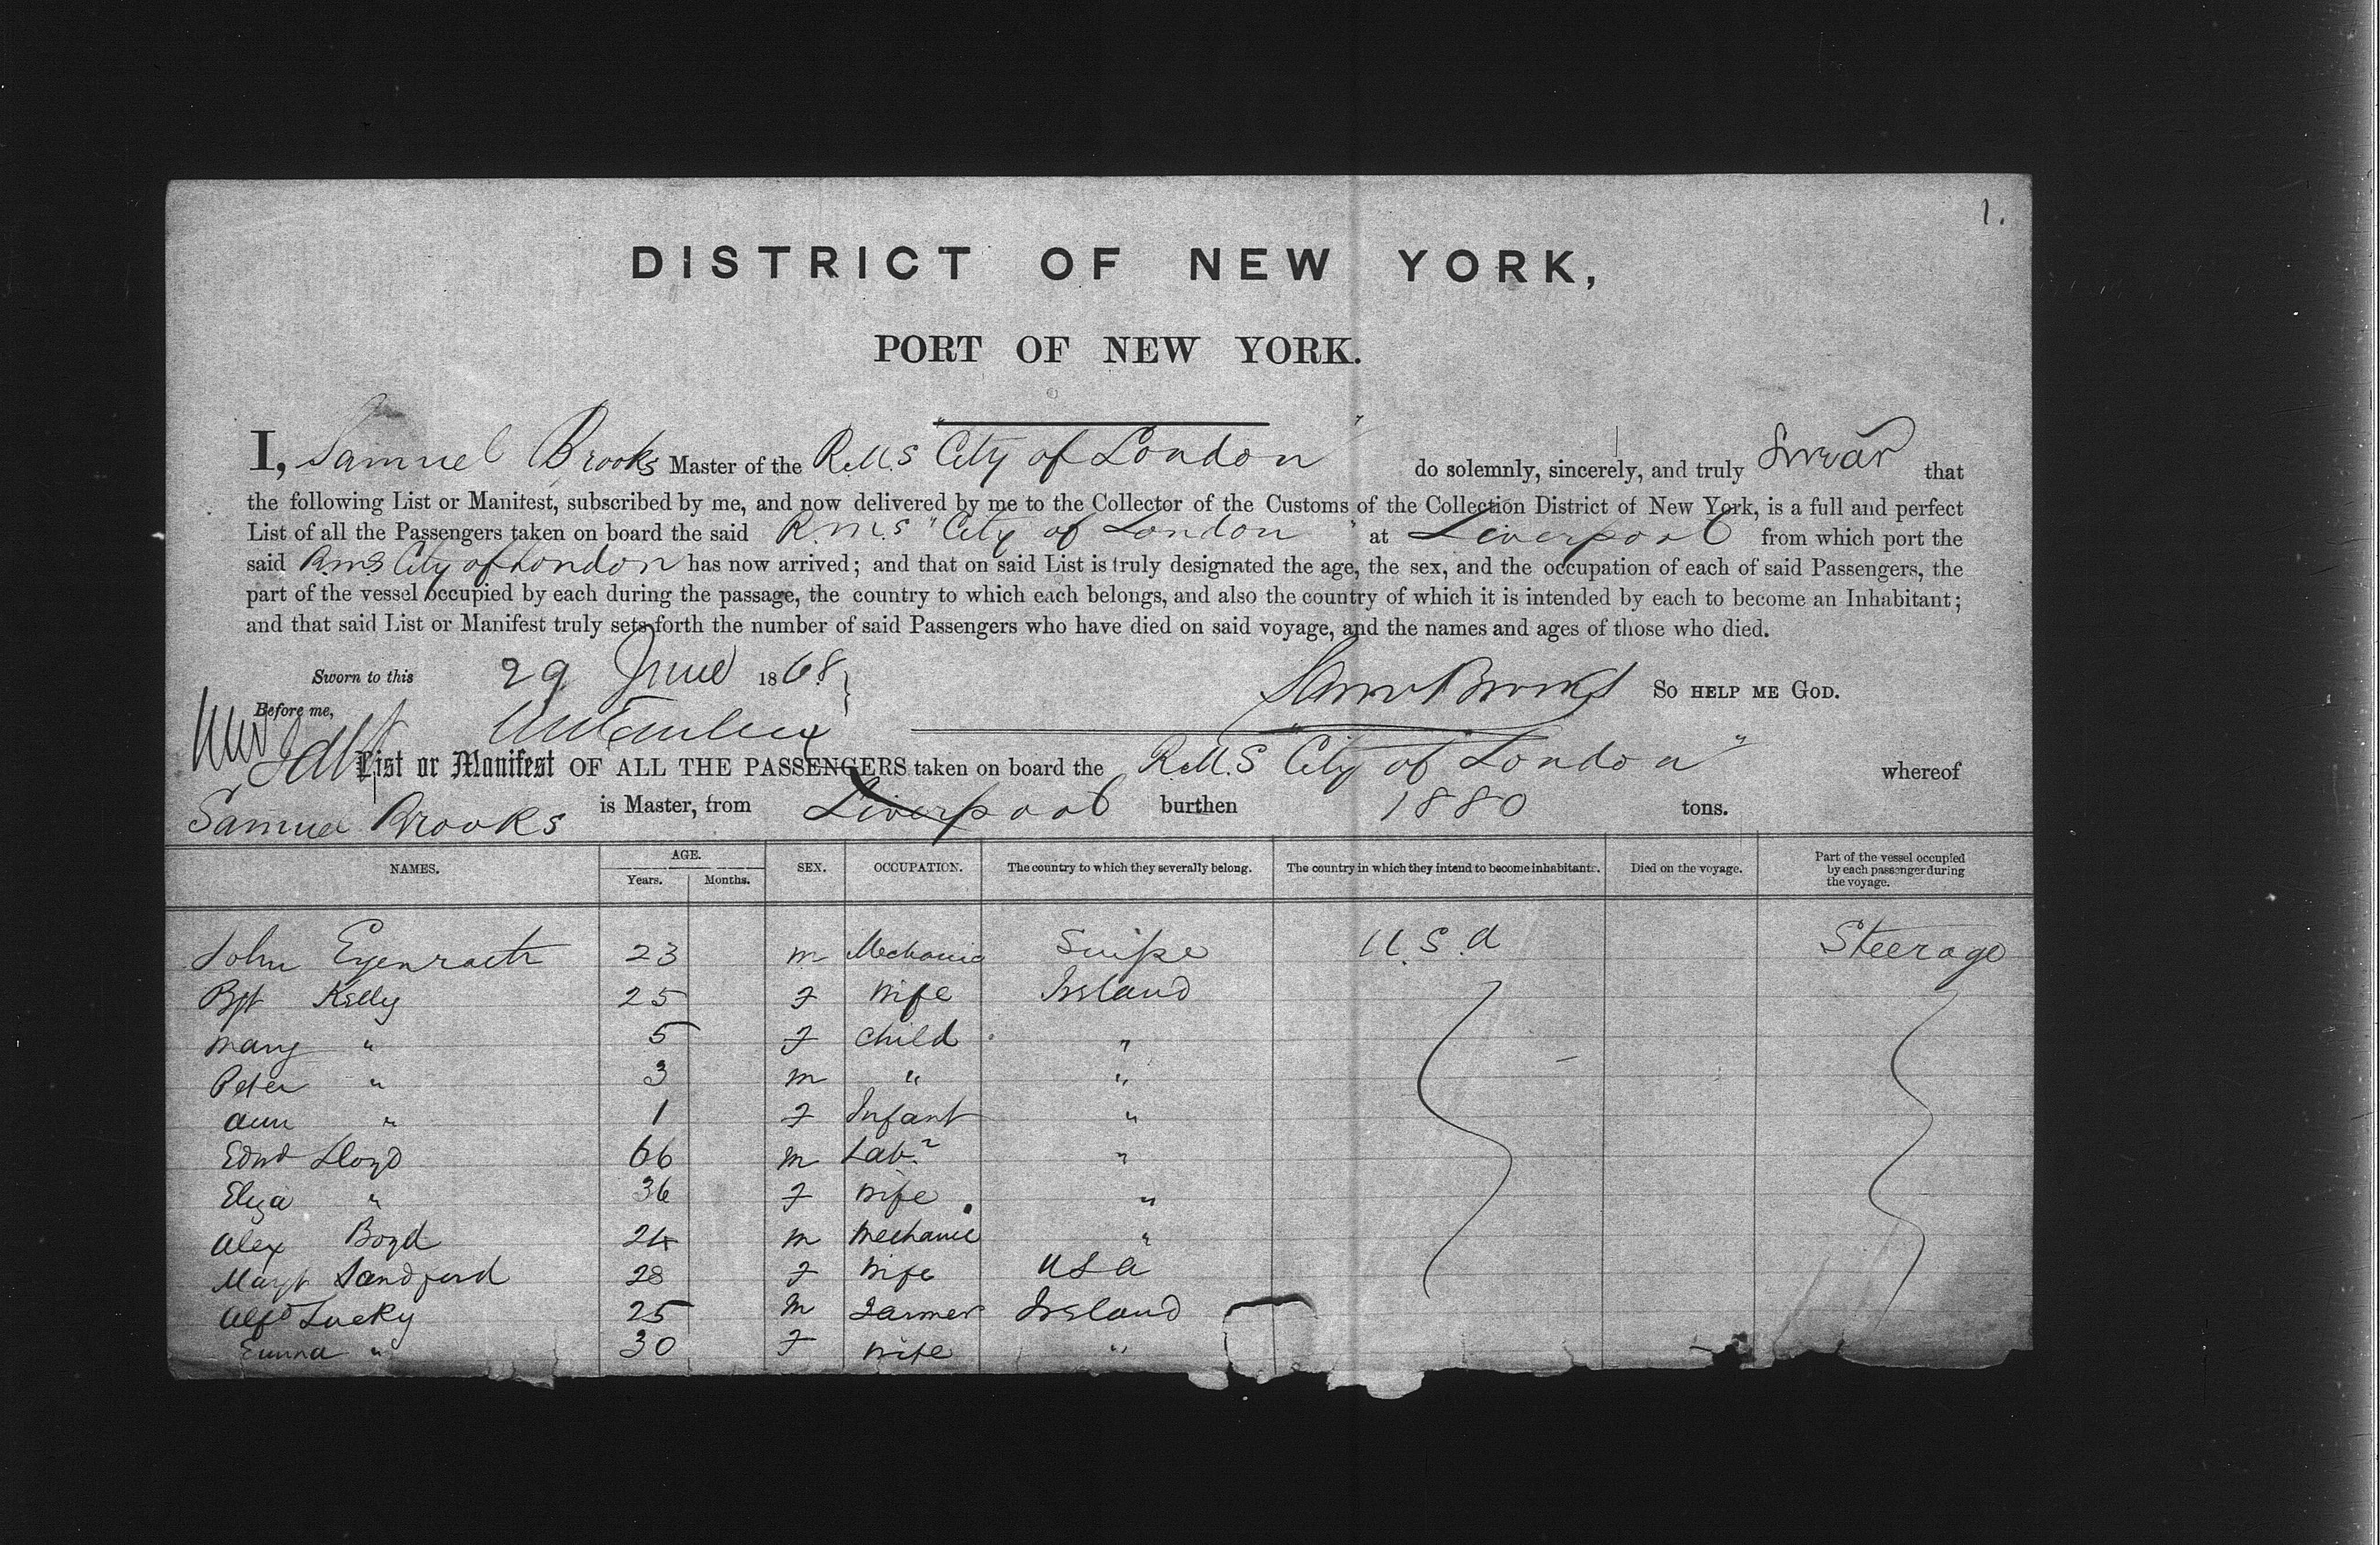 1.
DISTRICT OF NEW YORK,
PORT OF NEW YORK.
I, Samuel Brooks Master of the R.M.S "City of London" do solemnly, sincerely, and truly Swear that
the following List or Manifest, subscribed by me, and now delivered by me to the Collector of the Customs of the Collection District of New York, is a full and perfect
List of all the Passengers taken on board the said R.M.S "City of London" at Liverpool from which port the
said R.M.S City of London has now arrived; and that on said List is truly designated the age, the sex, and the occupation of each of said Passengers, the
part of the vessel occupied by each during the passage, the country to which each belongs, and also the country of which it is intended by each to become an Inhabitant;
and that said List or Manifest truly sets forth the number of said Passengers who have died on said voyage, and the names and ages of those who died.
Sworn to this 29 June 1868. Saml Brooks SO HELP ME GOD.
Before me,
List or Manifest OF ALL THE PASSENGERS taken on board the R.M.S "City of London" whereof
Samuel Brooks is Master, from Liverpool burthen 1880 tons.
NAMES. AGE. Years. Months. SEX. OCCUPATION. The country to which they severally belong. The country in which they intend to become inhabitants. Died on the voyage. Part of the vessel occupied by each passenger during the voyage.
John 23 m Mechanic Suisse U.S.A Steerage
Bgt Kelly 25 f Wife Ireland
Mary " 5 f Child "
Peter " 3 m " "
Ann " 1 f Infant "
Edwd Lloyd 66 m Labr "
Eliza " 36 f Wife "
Alex Boyd 24 m Mechanic "
Margt Sandford 28 f Wife USA
Alfd Lucky 25 m Farmer Ireland
Emma " 30 f Wife "